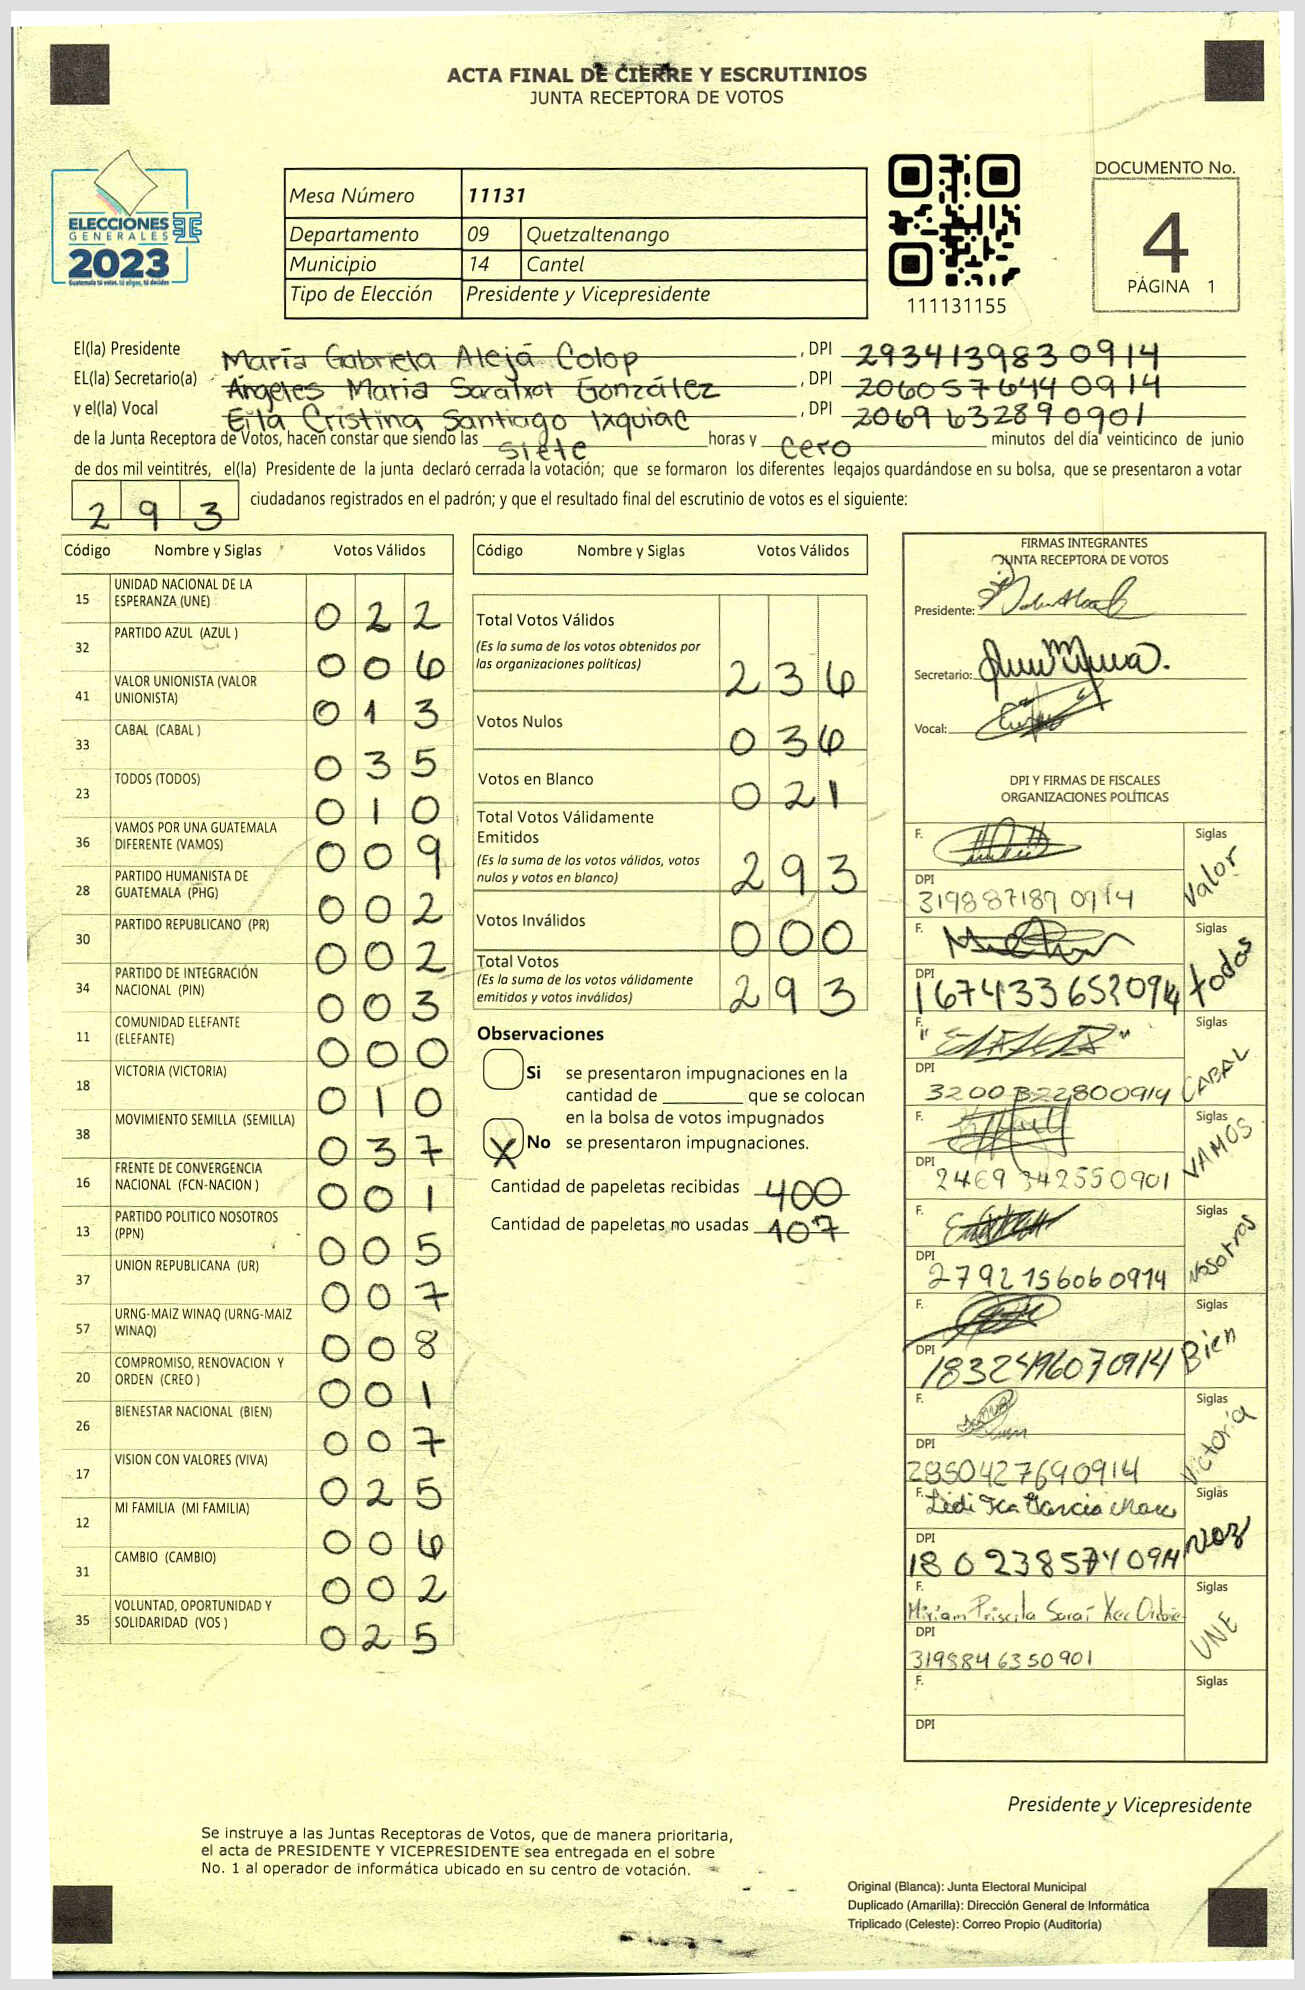 ACTA FINAL DE CIERRE Y ESCRUTINIOS
JUNTA RECEPTORA DE VOTOS
ELECCIONES
GENERALES
2023
Guatemala tú votas, tú eliges, tú decides
Mesa Número 11131
Departamento 09 Quetzaltenango
Municipio 14 Cantel
Tipo de Elección Presidente y Vicepresidente
111131155
DOCUMENTO No.
4
PÁGINA 1
El(la) Presidente María Gabriela Alejá Colop , DPI 2934139830914
EL(la) Secretario(a) Ángeles María Saratxot González , DPI 2060576440914
y el(la) Vocal Eila Cristina Santiago Ixquiac , DPI 2069632890901
de la Junta Receptora de Votos, hacen constar que siendo las siete horas y cero minutos del día veinticinco de junio
de dos mil veintitrés, el(la) Presidente de la junta declaró cerrada la votación; que se formaron los diferentes legajos quardándose en su bolsa, que se presentaron a votar
293 ciudadanos registrados en el padrón; y que el resultado final del escrutinio de votos es el siguiente:
Código Nombre y Siglas Votos Válidos
15 UNIDAD NACIONAL DE LA ESPERANZA (UNE) 022
32 PARTIDO AZUL (AZUL ) 006
41 VALOR UNIONISTA (VALOR UNIONISTA) 013
33 CABAL (CABAL ) 035
23 TODOS (TODOS) 010
36 VAMOS POR UNA GUATEMALA DIFERENTE (VAMOS) 009
28 PARTIDO HUMANISTA DE GUATEMALA (PHG) 002
30 PARTIDO REPUBLICANO (PR) 002
34 PARTIDO DE INTEGRACIÓN NACIONAL (PIN) 003
11 COMUNIDAD ELEFANTE (ELEFANTE) 000
18 VICTORIA (VICTORIA) 010
38 MOVIMIENTO SEMILLA (SEMILLA) 037
16 FRENTE DE CONVERGENCIA NACIONAL (FCN-NACION ) 001
13 PARTIDO POLITICO NOSOTROS (PPN) 005
37 UNION REPUBLICANA (UR) 007
57 URNG-MAIZ WINAQ (URNG-MAIZ WINAQ) 008
20 COMPROMISO, RENOVACION Y ORDEN (CREO ) 001
26 BIENESTAR NACIONAL (BIEN) 007
17 VISION CON VALORES (VIVA) 025
12 MI FAMILIA (MI FAMILIA) 006
31 CAMBIO (CAMBIO) 002
35 VOLUNTAD, OPORTUNIDAD Y SOLIDARIDAD (VOS ) 025
Código Nombre y Siglas Votos Válidos
Total Votos Válidos 236
(Es la suma de los votos obtenidos por
las organizaciones políticas)
Votos Nulos 036
Votos en Blanco 021
Total Votos Válidamente
Emitidos 293
(Es la suma de los votos válidos, votos
nulos y votos en blanco)
Votos Inválidos 000
Total Votos 293
(Es la suma de los votos válidamente
emitidos y votos inválidos)
Observaciones
Si se presentaron impugnaciones en la
cantidad de ________ que se colocan
en la bolsa de votos impugnados
X No se presentaron impugnaciones.
Cantidad de papeletas recibidas 400
Cantidad de papeletas no usadas 107
FIRMAS INTEGRANTES
JUNTA RECEPTORA DE VOTOS
Presidente:
Secretario:
Vocal:
DPI Y FIRMAS DE FISCALES
ORGANIZACIONES POLÍTICAS
F. Siglas Valor
DPI 3198871890914
F. Siglas todos
DPI 1674336520914
F. Siglas CABAL
DPI 3200322800914
F. Siglas VAMOS
DPI 2469342550901
F. Siglas Nosotros
DPI 2792156060914
F. Siglas Bien
DPI 1832496070914
F. Siglas Victoria
DPI 2850427690914
F. Siglas voz
DPI 1802385740914
F. Miriam Priscila Saraí Xec Siglas UNE
DPI 3198846350901
F. Siglas
DPI
Presidente y Vicepresidente
Se instruye a las Juntas Receptoras de Votos, que de manera prioritaria,
el acta de PRESIDENTE Y VICEPRESIDENTE sea entregada en el sobre
No. 1 al operador de informática ubicado en su centro de votación.
Original (Blanca): Junta Electoral Municipal
Duplicado (Amarilla): Dirección General de Informática
Triplicado (Celeste): Correo Propio (Auditoría)